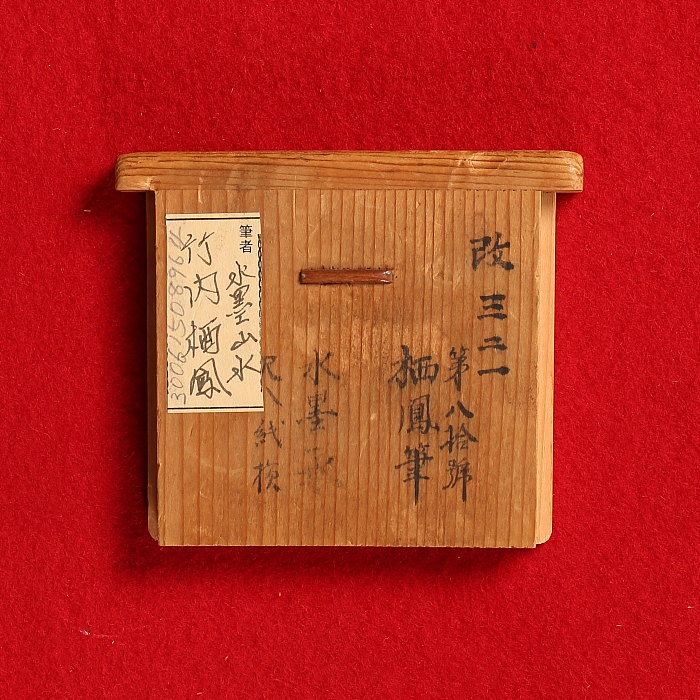 改 三二一
第八拾號
栖鳳筆
水墨
八 紙 横
筆者
水墨山水
竹内栖鳳
3006150896